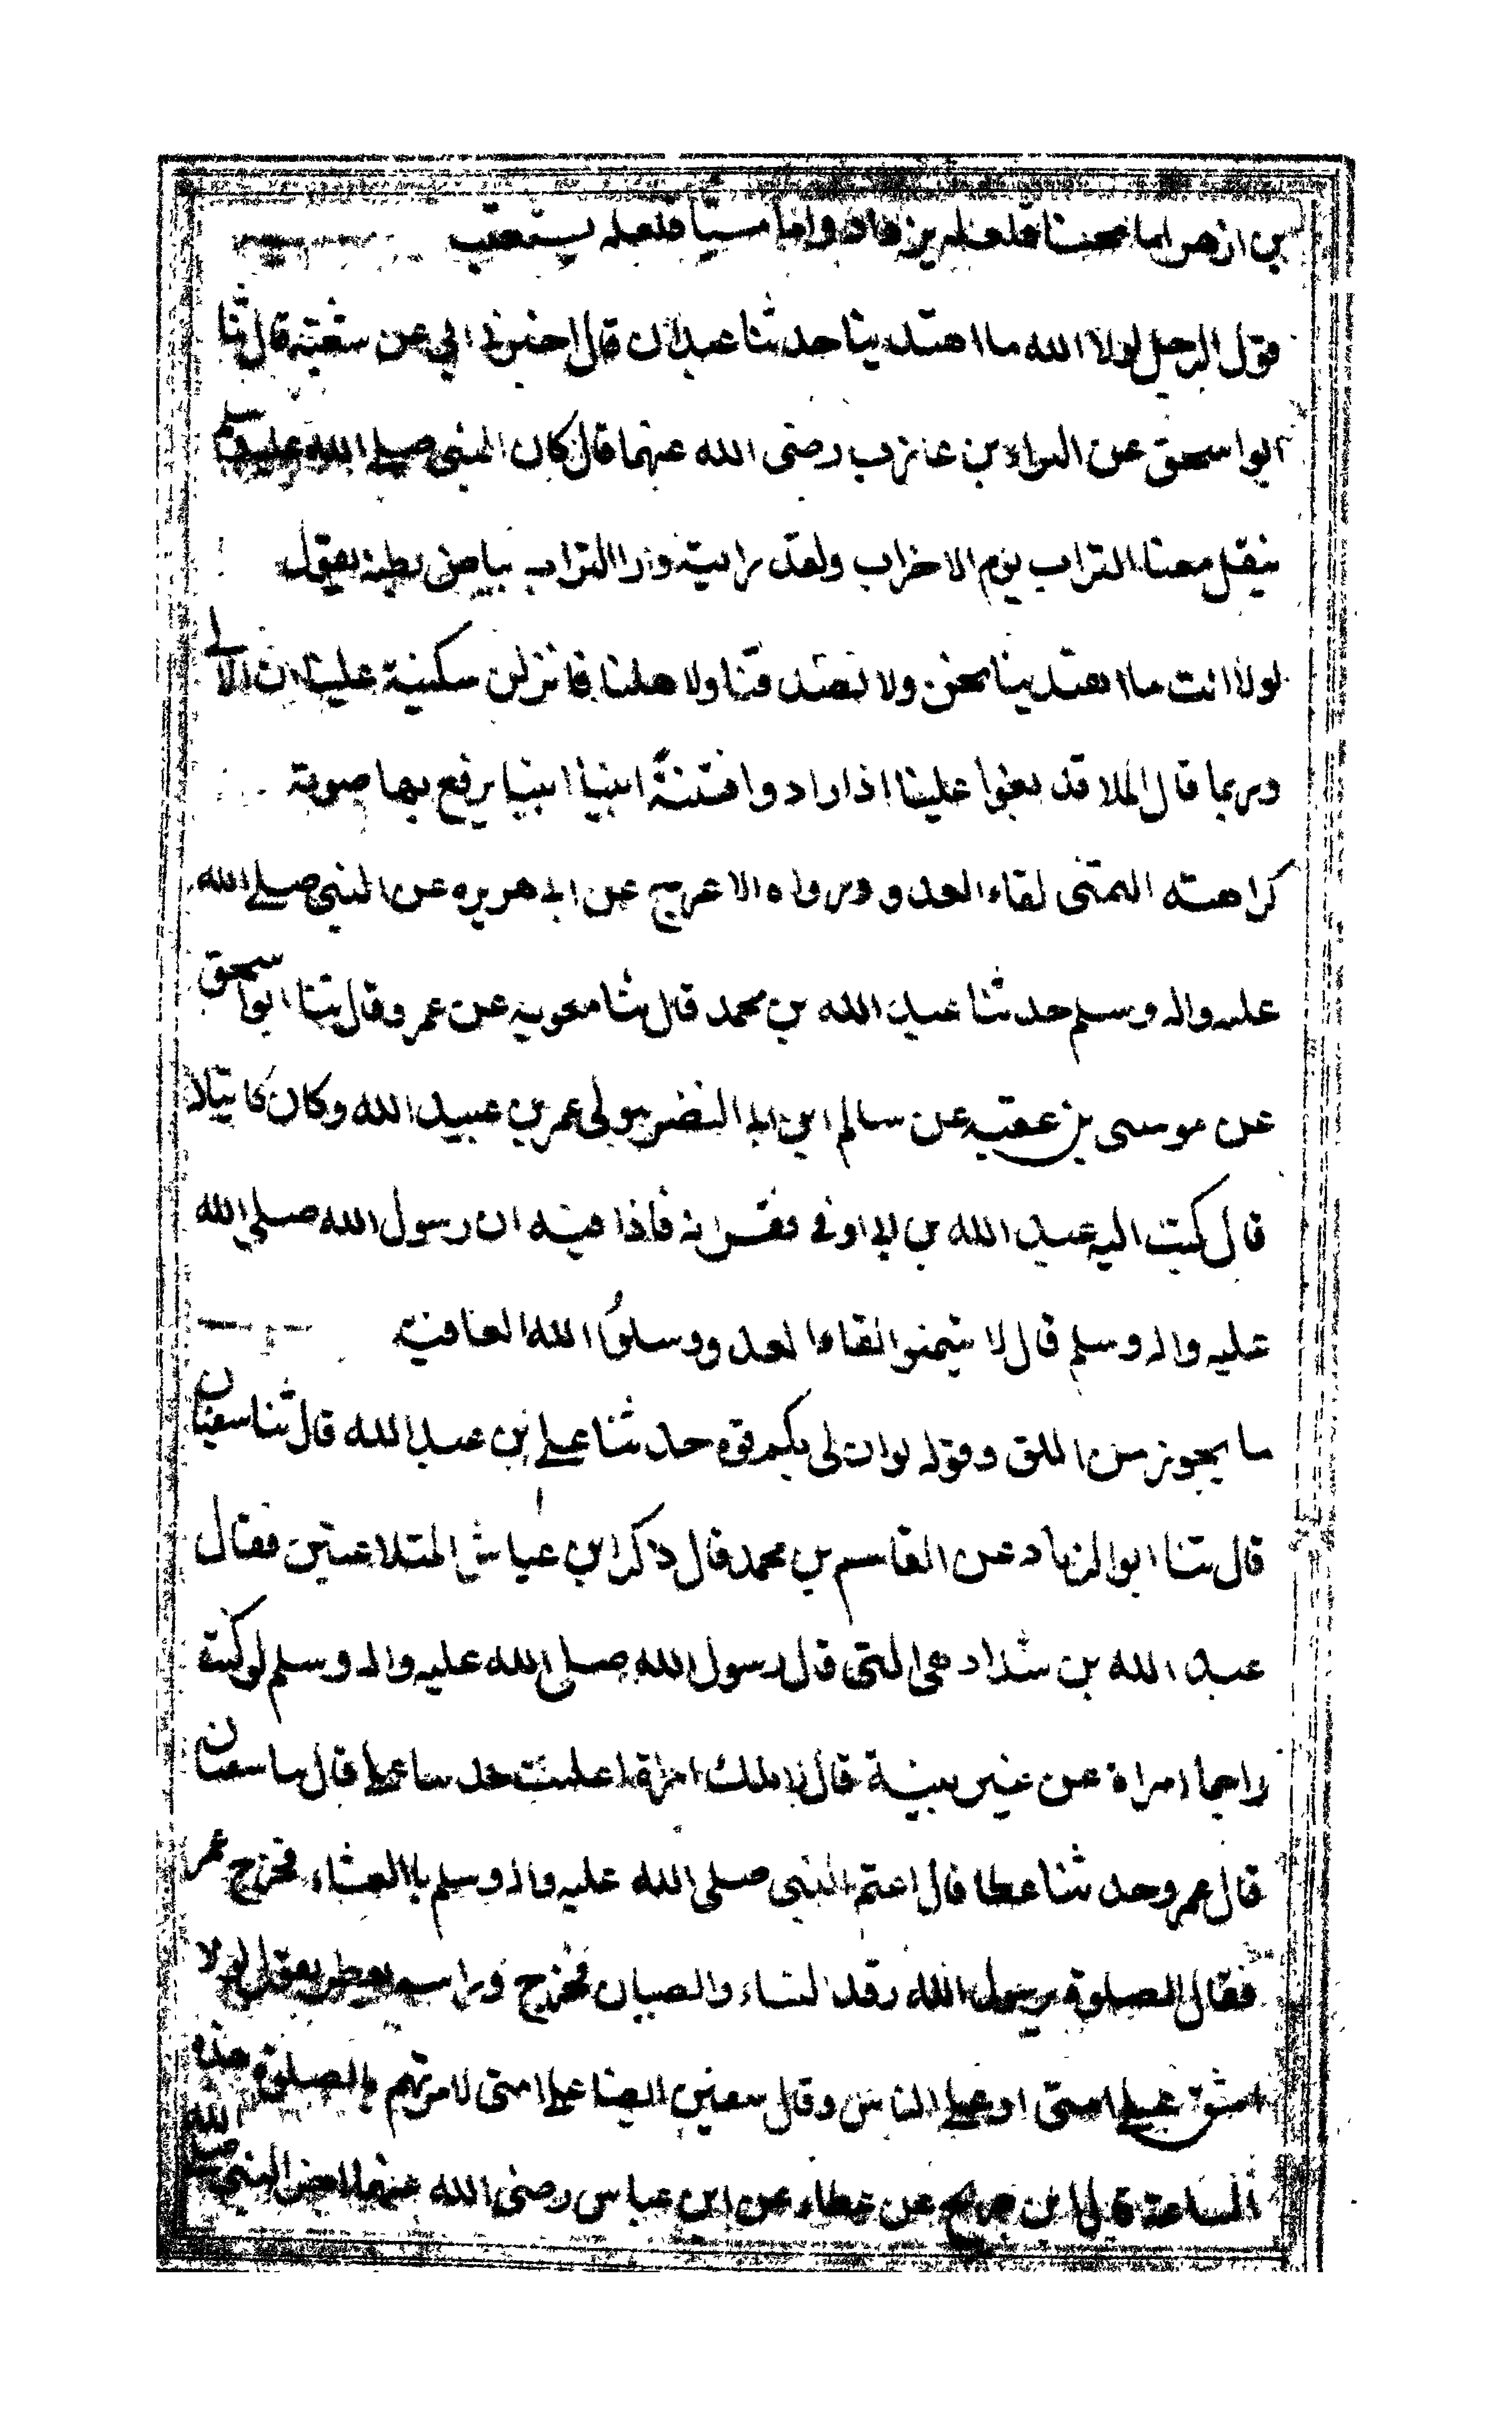 بن ازهر اما محسنا فلعله يزداد واما مسيا فلعله يستعتب
قول الرجل لولا الله ما اهتدينا حدثنا عبدان قال اخبرني ابي عن شعبة قال ثنا
ابوا سحق عن البراء بن عازب رضى الله عنهما قال كان النبي صلى الله عليه وسلم
ينقل معنا التراب يوم الاحزاب ولقد رايته وارا التراب بياض بطنه يقول
لولا انت ما اهتدينا نحن ولا تصدقنا ولا صلنا فانزلن سكينة علينا ان الالى
وربما قال الملا قد بغوا علينا اذا ارادوا فتنةً ابينا ابينا يرفع بها صوته
كراهته التمنى لقاء العدو ورواه الاعرج عن ابى هريره عن النبي صلى الله
عليه واله وسلم حدثنا عبد الله بن محمد قال ثنا معوية عن عمر وقال ثنا ابوا سحق
عن موسى بن عقبة عن سالم ابن ابى النضر مولى عمر بن عبيد الله وكان كاتبلا
قال كتب اليه عبد الله بن ابى اوفى فقراته فاذا فيه ان رسول الله صلى الله
عليه واله وسلم قال لا تتمنوا لقاء العدو وسلوا الله العافية
ما يجوز من اللو وقوله لو ان لى بكم قوه حدثنا على بن عبد الله قال ثنا سفيان
قال ثنا ابو الزناد عن القاسم بن محمد قال ذكر ابن عباس المتلاعنين فقال
عبد الله بن شداد هى التى قال رسول الله صلى الله عليه واله وسلم لو كنت
راجما امراة عن غير بينة قال لا تلك امراة اعلنت حدثنا على قال ثنا سفيان
قال عمر وحدثنا عطا قال اعتم النبي صلى الله عليه واله وسلم باالعشاء فخرج عمر
فقال الصلوة يرسول الله رقد النساء والصبيان فخرج وراسه يقطر يقول لولا
اشق على امتى او على الناس وقال سفين ايضا على امتى لامرتهم بالصلوة هذه
الساعة قال ابن جريج عن عطاء عن ابن عباس رضى الله عنهما اخر النبي صلى الله